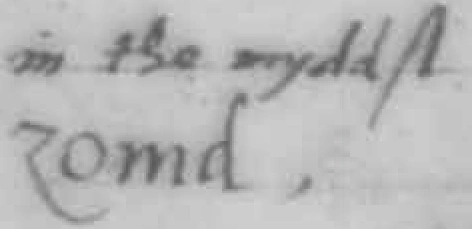 in the myddſt
zomd,